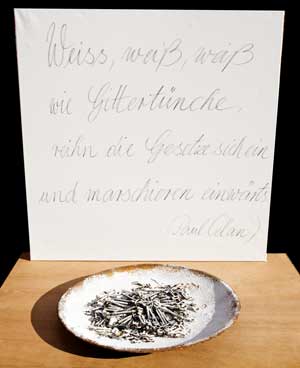 Weiss, weiß, weiß
wie Gittertünche,
reihn die Gesetze sich ein
und marschieren einwärts
(Paul Celan)